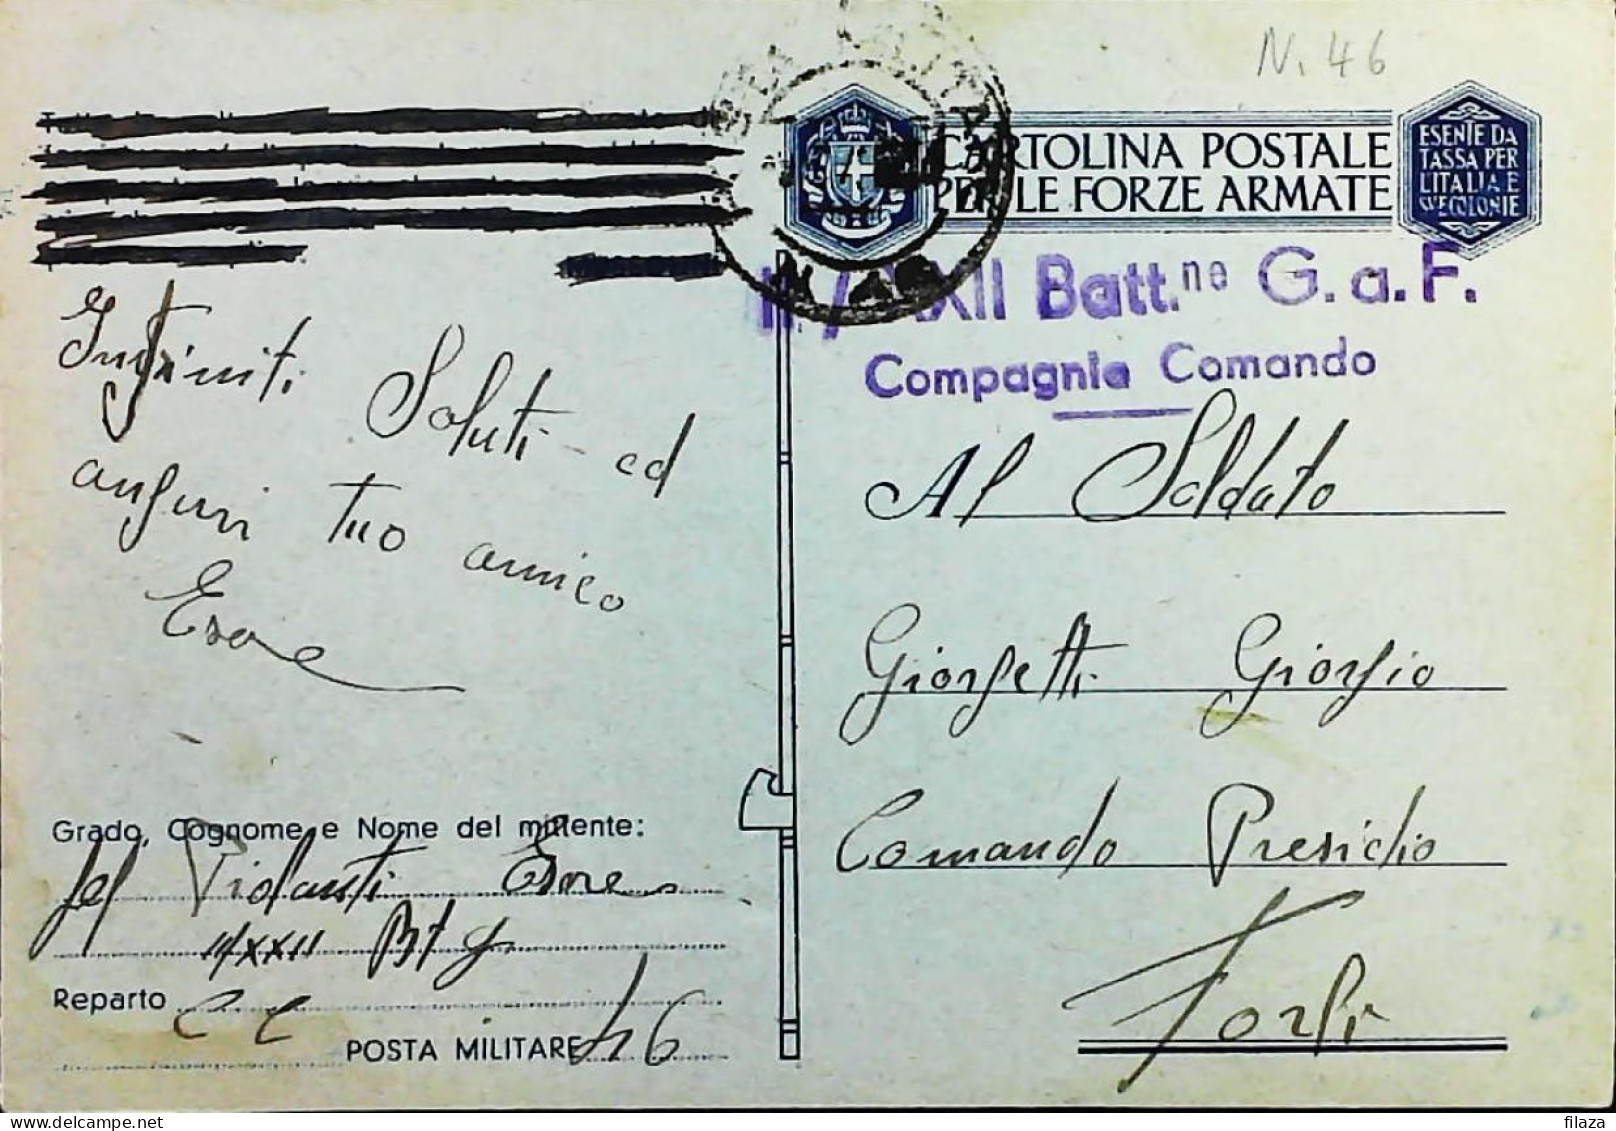 N. 46
CARTOLINA POSTALE
PER LE FORZE ARMATE
ESENTE DA
TASSA PER
L'ITALIA E
SUE COLONIE
N. 46
II / XXII Batt.ne G.a.F.
Compagnia Comando
Infiniti Saluti ed
auguri tuo amico
Esore
Al Soldato
Giorgetti Giorgio
Comando Presidio
Forlì
Grado, Cognome e Nome del mittente:
Violanti Esore
II/XXII Btg
Reparto CC
POSTA MILITARE 46
filaza